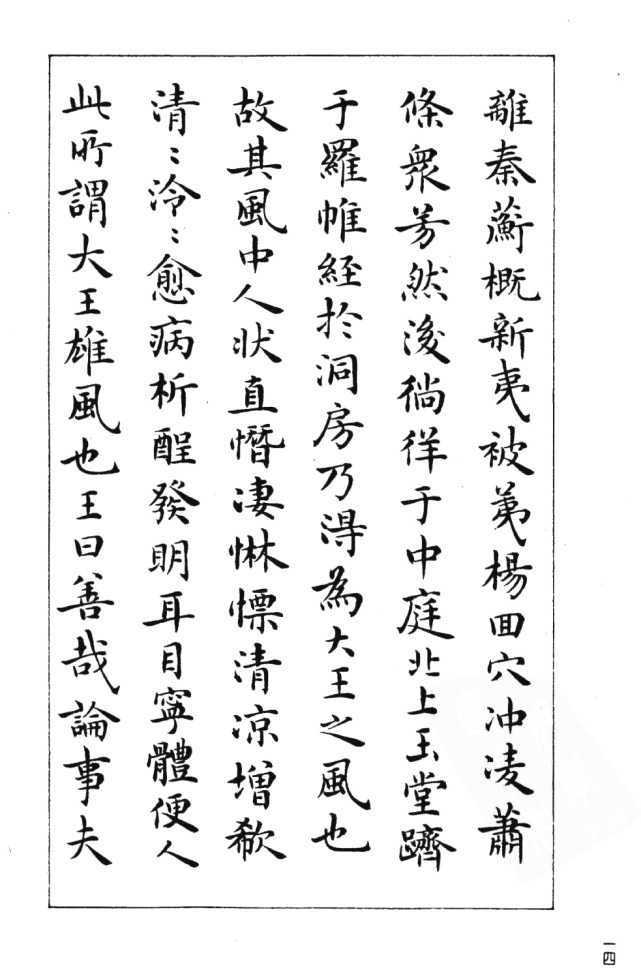 離秦蘅概新夷被荑楊回穴沖淩蕭
條衆芳然後徜徉于中庭北上玉堂躋
于羅帷經於洞房乃得為大王之風也
故其風中人狀直憯凄惏慄清凉增欷
清〻泠〻愈病析酲發明耳目寧體便人
此所謂大王雄風也王曰善哉論事夫
一四